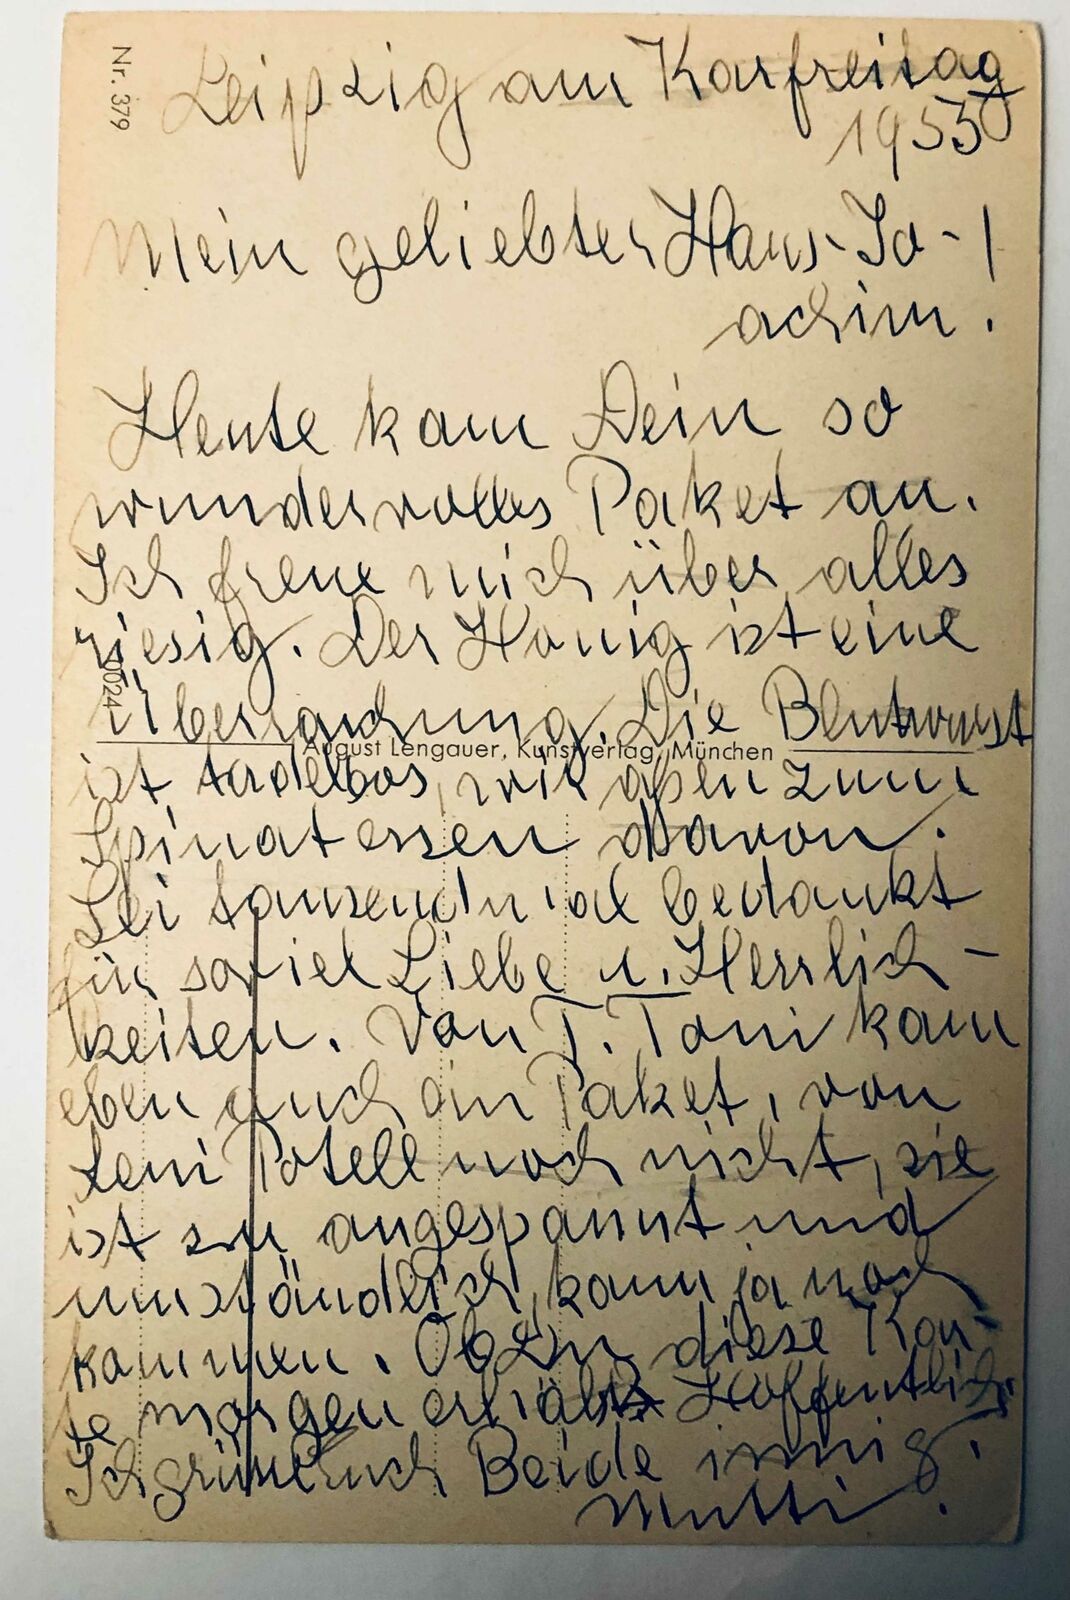 Nr. 379
Leipzig am Karfreitag
1953
Mein geliebter Hans-Jo-
achim!
Heute kam Dein so
wundervolles Paket an.
Ich freue mich über alles
riesig. Der Honig ist eine
0024
Überraschung. Die Blutwurst
August Lengauer, Kunstverlag, München
ist tadellos, wir aßen zum
Spinatessen davon.
Sei tausendmal bedankt
für soviel Liebe u. Herrlich-
keiten. Von T. Toni kam
eben auch ein Paket, von
Leni Potell noch nicht, sie
ist zu angespannt und
umständlich, kann ja noch
kommen. Ob Du diese Kar-
te morgen erhältst? Hoffentlich.
Ich grüße euch Beide innig.
Mutti.